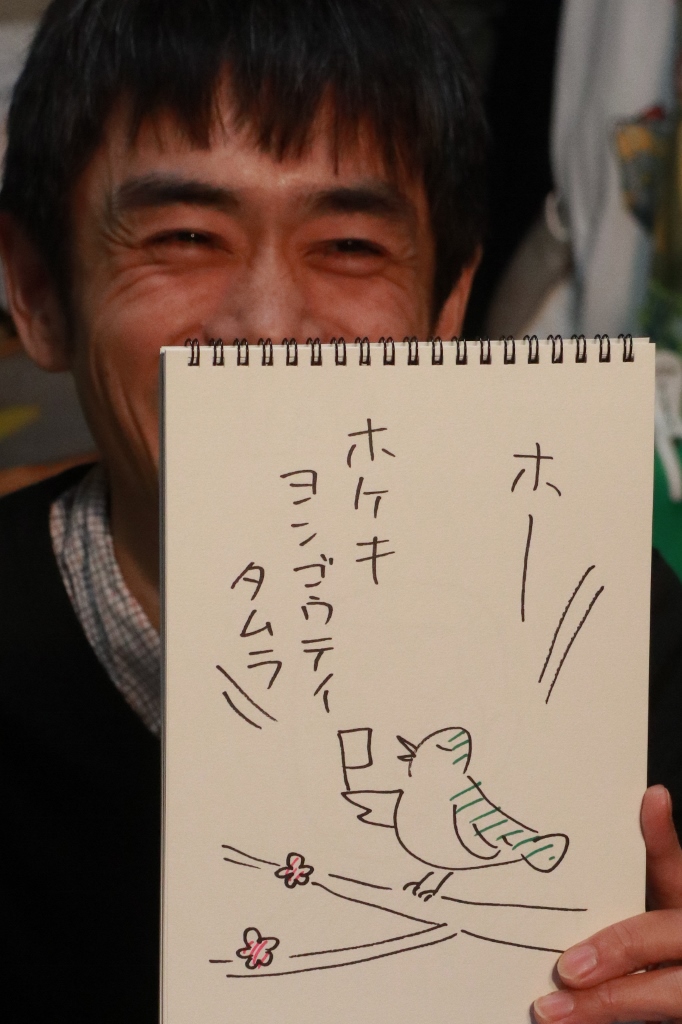 ホー
ホケキ
ヨンゴウテイ
タムラ